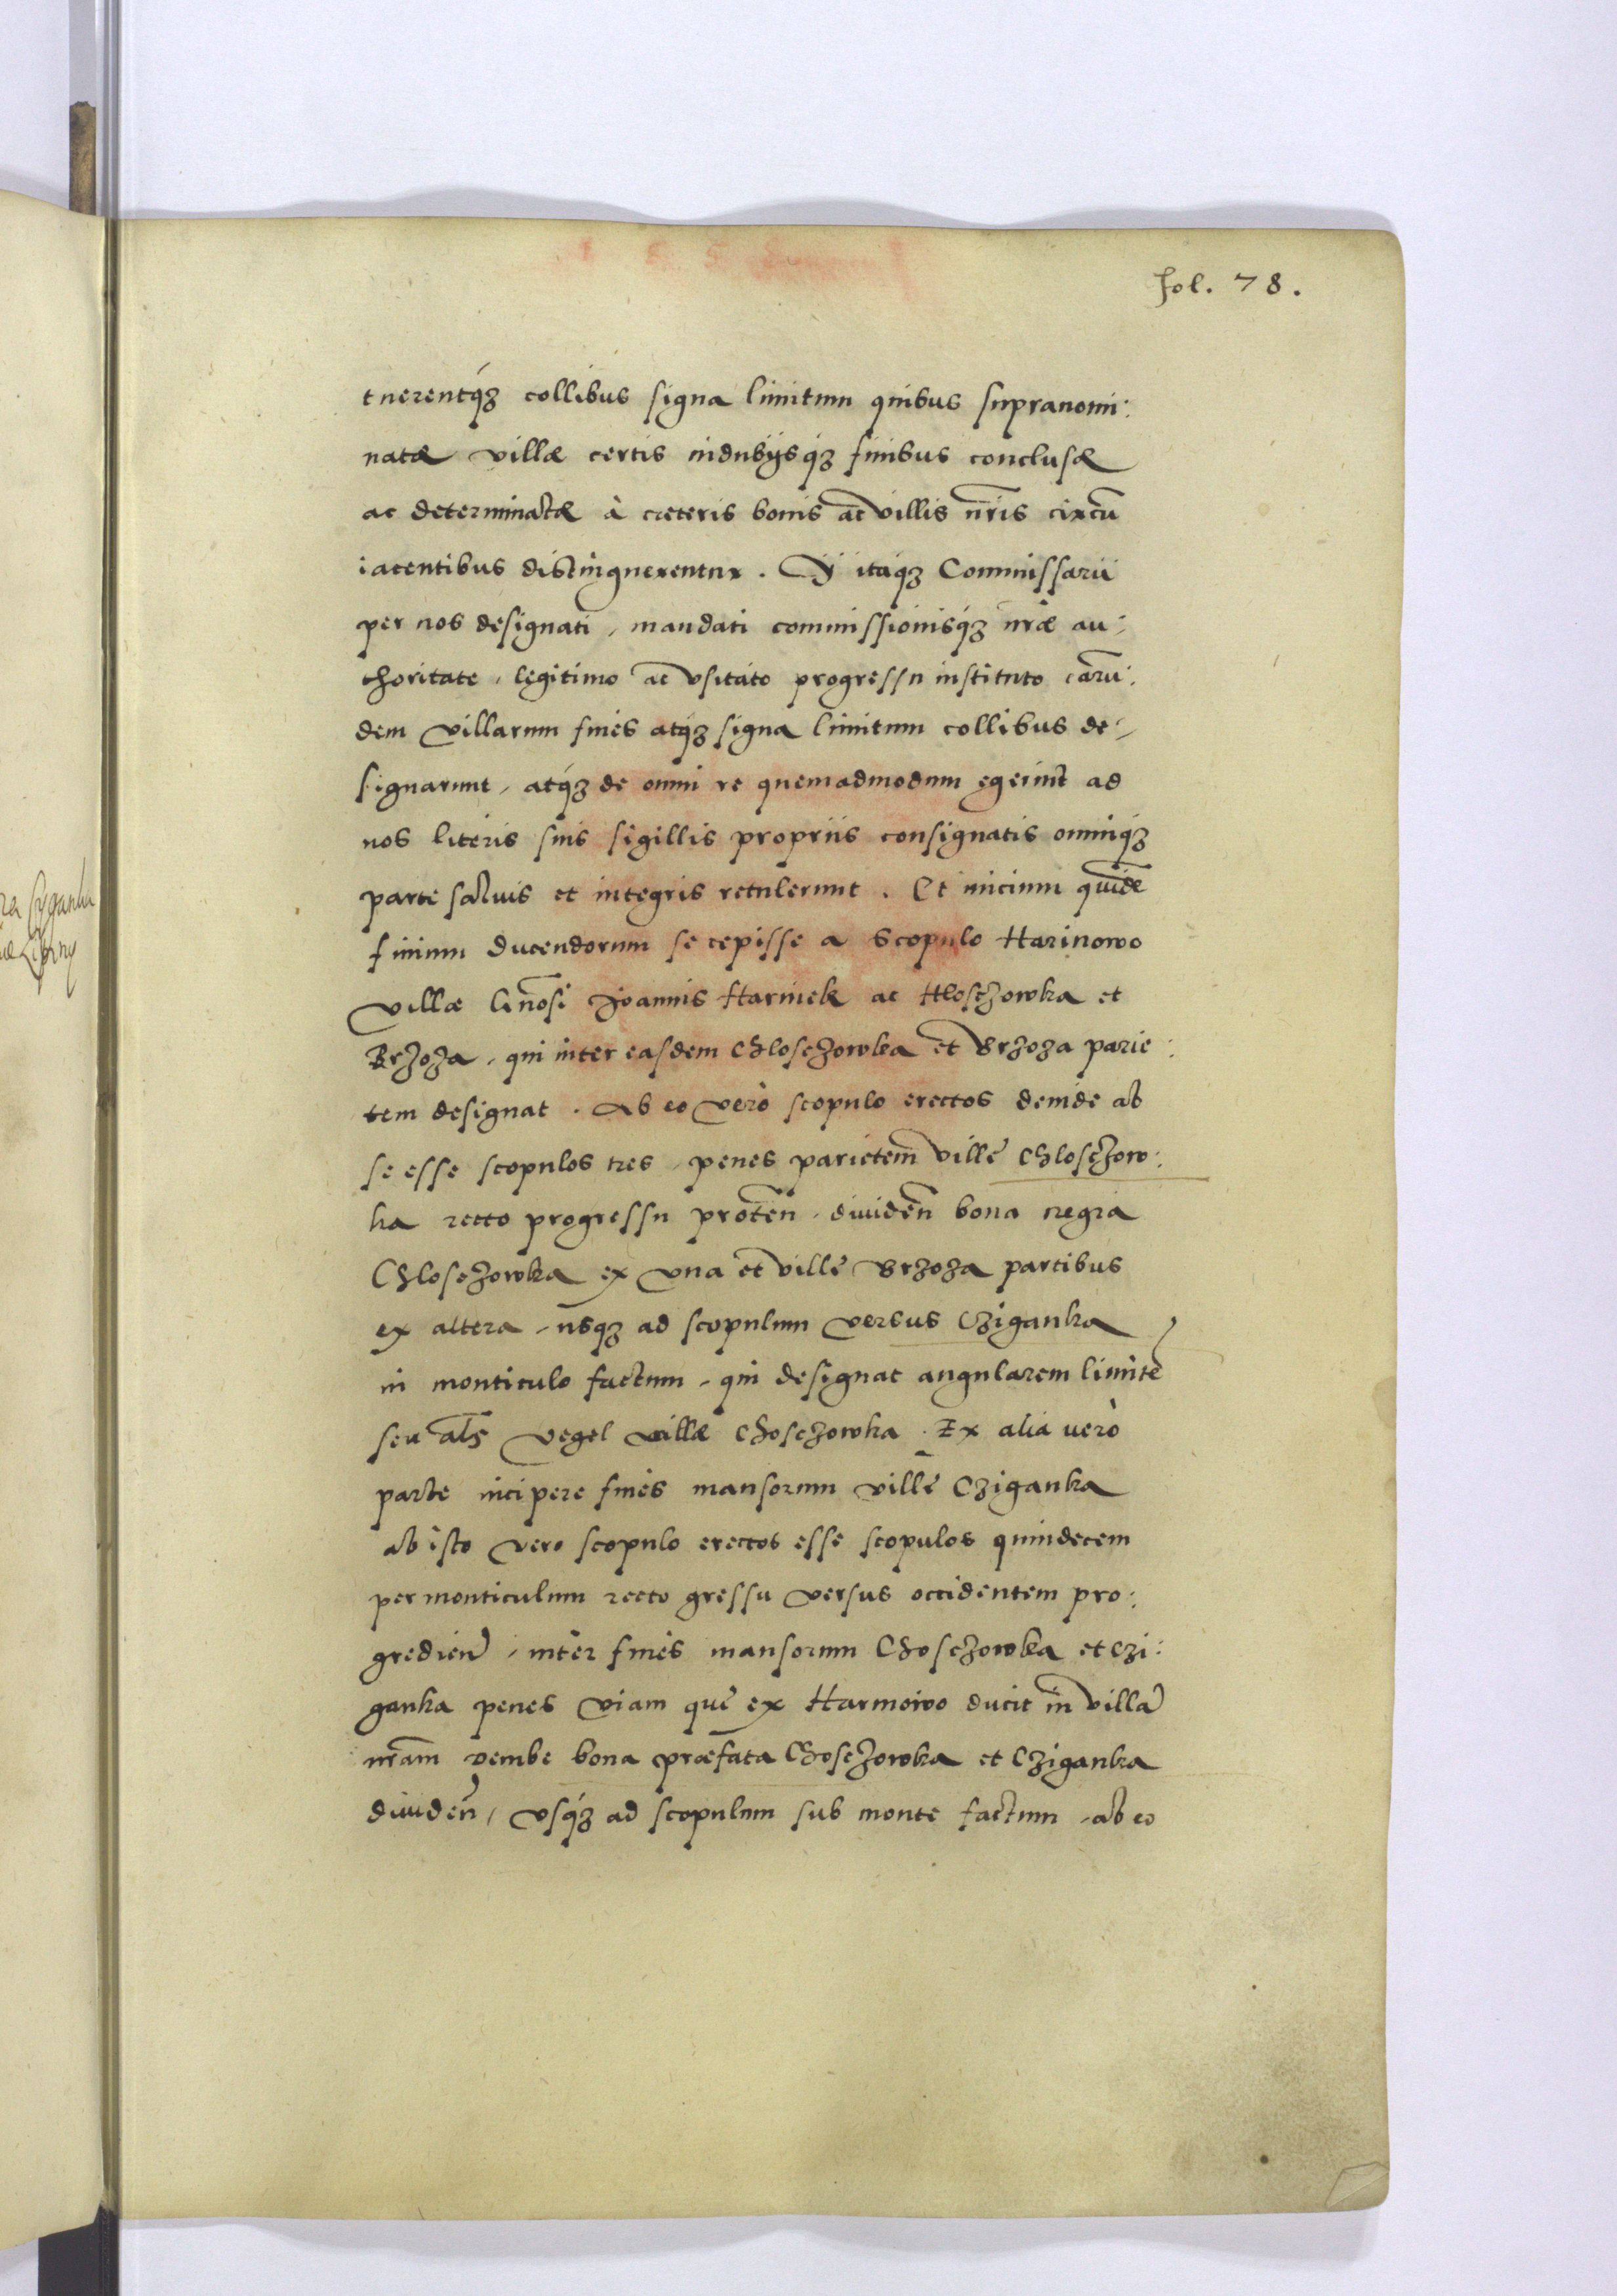 fol. 78.
tuerentq́ꝫ collibus signa limitum quibus supranomi:
natæ villæ certis indubijsq́ꝫ finibus conclusæ
ac determinatæ à cæteris bonis ac villis nr̄is circū
iacentibus distinguerentur. Ij itaqꝫ Commissarii
per nos designati, mandati commissionisq́ꝫ nr̄æ au:
thoritate, legitimo ac vsitato progressu instituto earū:
dem villarum fines atq́ꝫ signa limitum collibus de:
signarunt, atq́ꝫ de omni re quemadmodum egerint ad
nos literis suis sigillis propriis consignatis omniq́ꝫ
parte saluis et integris retulerunt. Et inicium quidē
finium ducendorum se cepisse a scopulo Harinowo
villæ Gn̄osi Joannis Harinek ac Hloschowka et
Brzoza, qui inter easdem Chlosczowka et Brzoza parie:
tem designat. Ab eo verò scopulo erectos deinde ab
se esse scopulos tres, penes parietem ville Chlosczow:
ka recto progressu protēn, diuidēn bona regia
Chlosczowka ex vna et ville Brzoza partibus
ex altera, usqꝫ ad scopulum versus Cziganka
in monticulo factum, qui designat angularem limitē
seu al̄s vegel villæ Chosczowka. Ex alia verò
parte incipere fines mansorum ville Cziganka
ab isto vero scopulo erectos esse scopulos quindecem
per monticulum recto gressu versus occidentem pro:
gredien̄, inter fines mansorum Chosczowka et Czi:
ganka penes viam que ex Harinowo ducit in villā
nr̄am vembe bona præfata Chosczowka et Cziganka
diuiden̄, vsq́ꝫ ad scopulum sub monte factum, ab eo